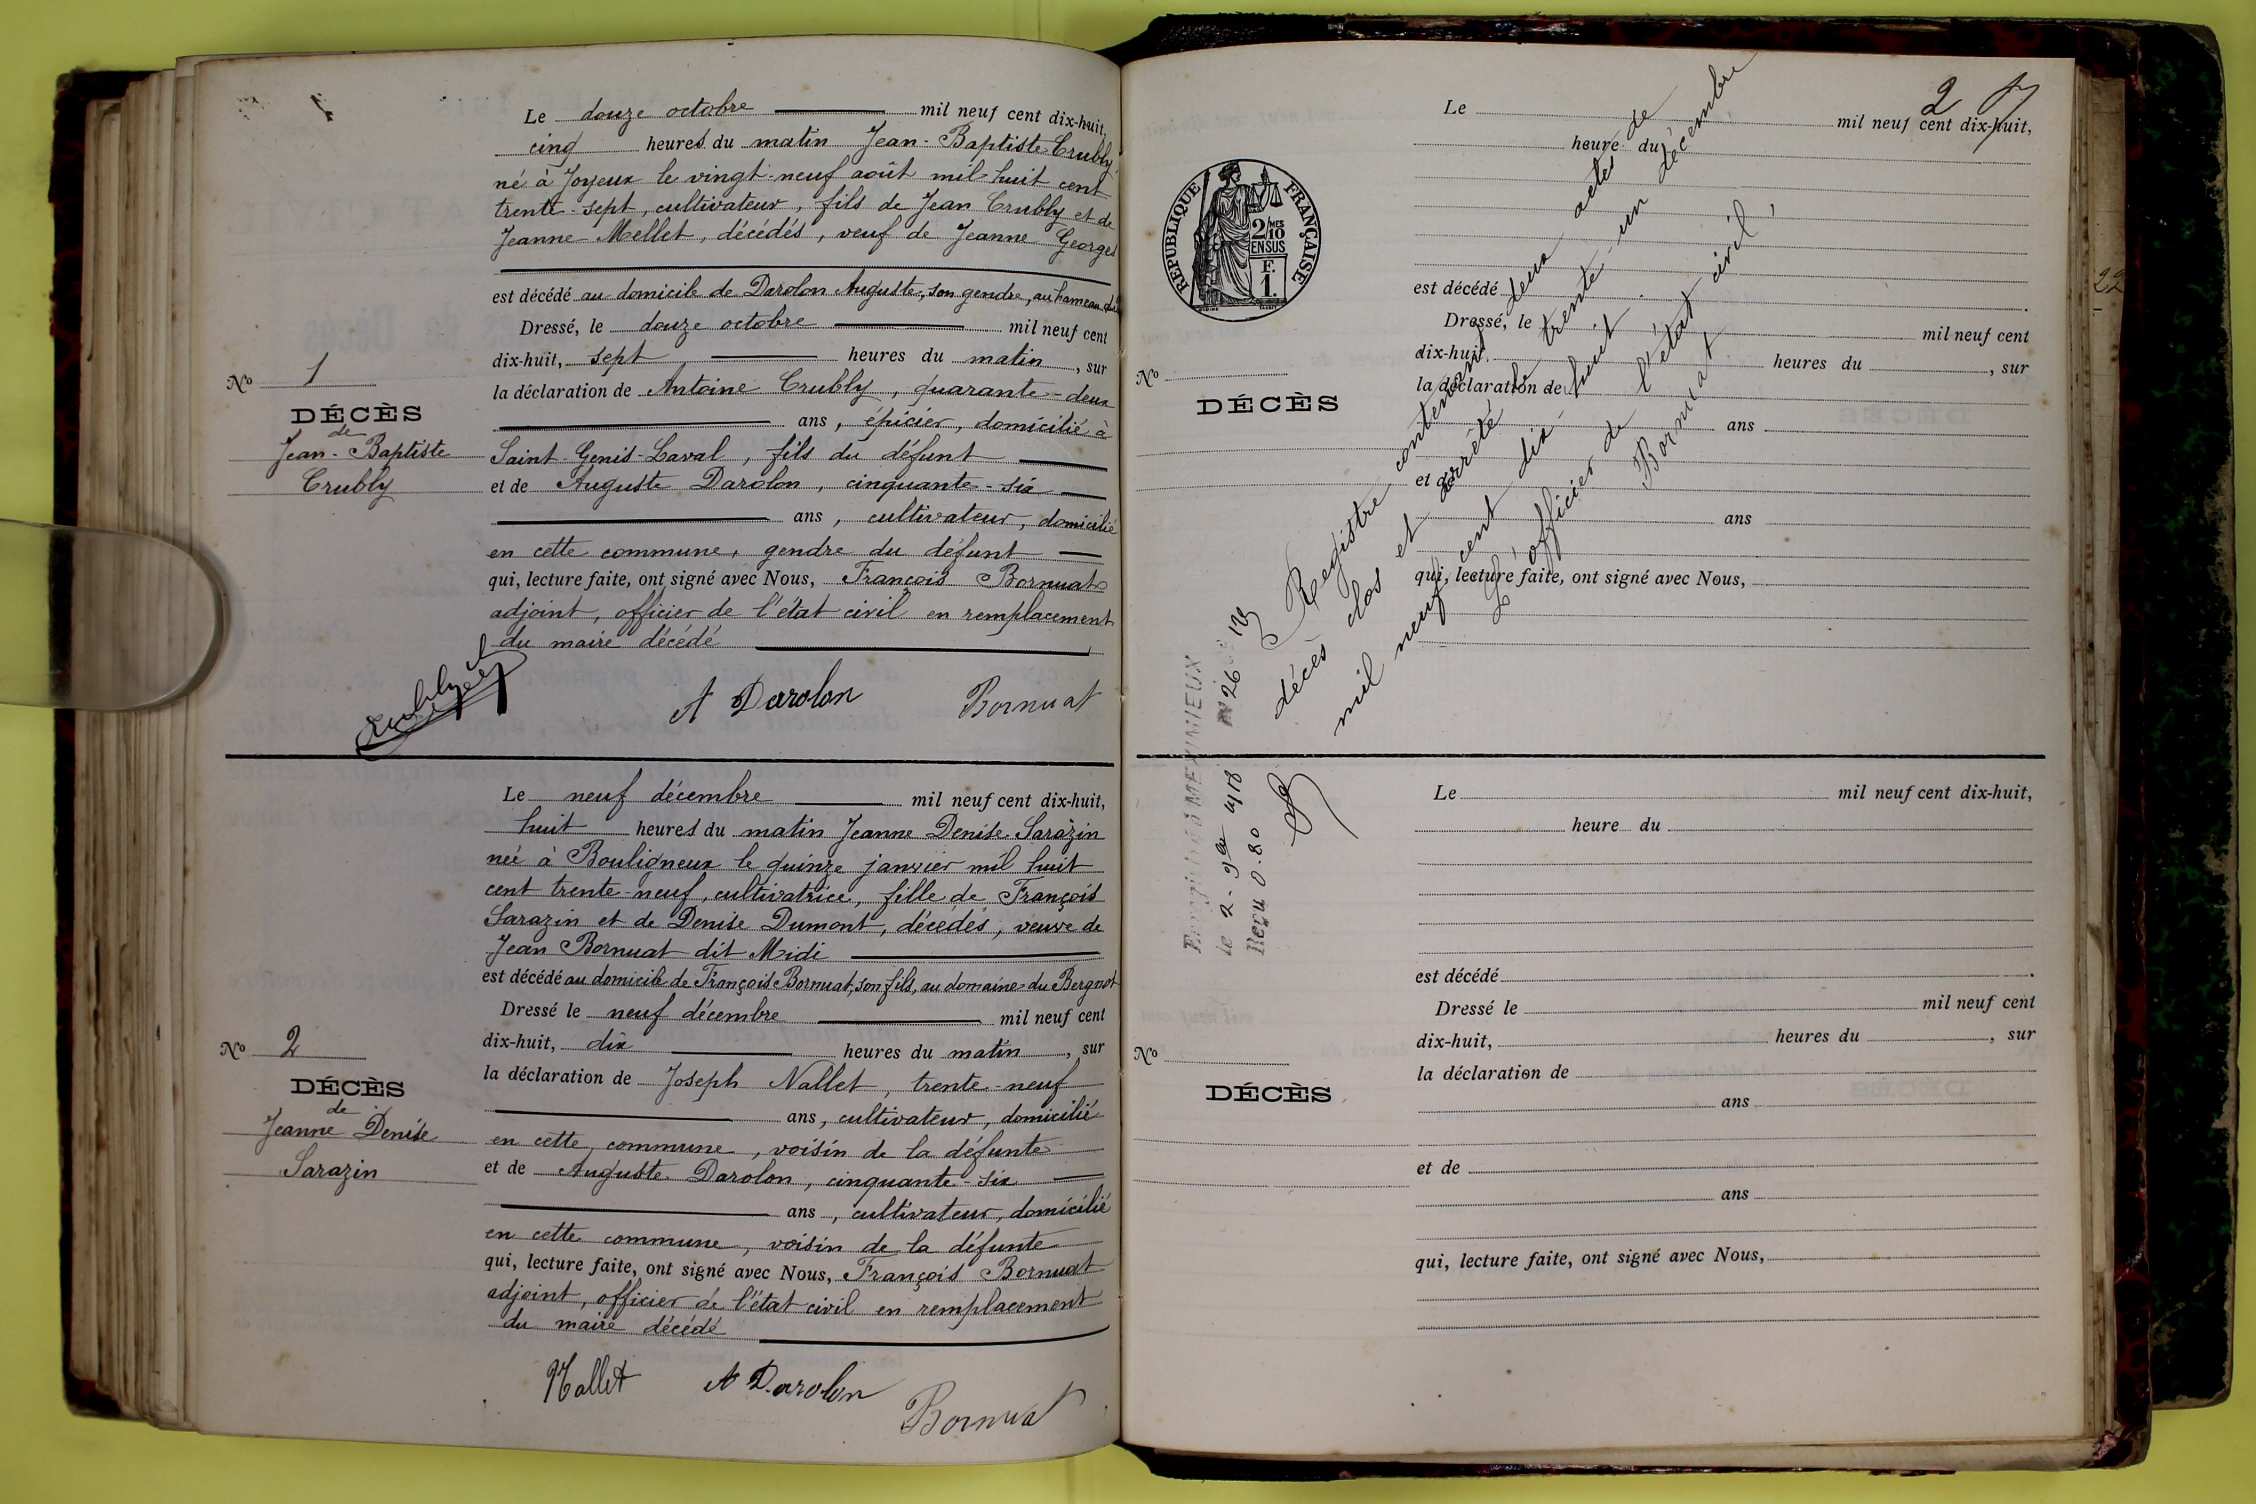 Le douze octobre mil neuf cent dix-huit,
cinq heures du matin Jean-Baptiste Crubly
né à Joyeux le vingt-neuf août mil huit cent
trente-sept, cultivateur, fils de Jean Crubly et de
Jeanne Mellet, décédés, veuf de Jeanne Georges
est décédé au domicile de Darolon Auguste, son gendre, au hameau
Dressé, le douze octobre mil neuf cent
dix-huit, sept heures du matin, sur
la déclaration de Antoine Crubly, quarante-deux
ans, épicier, domicilié à
Saint-Genis-Laval, fils du défunt
et de Auguste Darolon, cinquante-six
ans, cultivateur, domicilié
en cette commune, gendre du défunt
qui, lecture faite, ont signé avec Nous, François Bornuat
adjoint, officier de l'état civil en remplacement
du maire décédé
A Darolon Bornuat
No 1
DÉCÈS
de
Jean-Baptiste
Crubly
Le neuf décembre mil neuf cent dix-huit,
huit heures du matin Jeanne Denise Sarazin
née à Bouligneux le quinze janvier mil huit
cent trente-neuf, cultivatrice, fille de François
Sarazin et de Denise Dumont, décédés, veuve de
Jean Bornuat dit Midi
est décédé au domicile de François Bornuat, son fils, au domaine du Bergnot
Dressé le neuf décembre mil neuf cent
dix-huit, dix heures du matin, sur
la déclaration de Joseph Nallet, trente-neuf
ans, cultivateur, domicilié
en cette commune, voisin de la défunte
et de Auguste Darolon, cinquante-six
ans, cultivateur, domicilié
en cette commune, voisin de la défunte
qui, lecture faite, ont signé avec Nous, François Bornuat
adjoint, officier de l'état civil en remplacement
du maire décédé
Nallet A Darolon
Bornuat
No 2
DÉCÈS
de
Jeanne Denise
Sarazin
2
Le mil neuf cent dix-huit,
heure du
est décédé .
Dressé, le mil neuf cent
dix-huit, heures du , sur
la déclaration de
ans
et de
ans
qui, lecture faite, ont signé avec Nous,
REPUBLIQUE FRANÇAISE
2/10 MES
EN SUS
F.
1.
No
DÉCÈS
Registre contenant deux actes de
décès clos et arrêté le trente-un décembre
mil neuf cent dix-huit.
L'officier de l'état civil,
Bornuat
MEXIMIEUX
Reçu 0.80
Le mil neuf cent dix-huit,
heure du
est décédé .
Dressé le mil neuf cent
dix-huit, heures du , sur
la déclaration de
ans
et de
ans
qui, lecture faite, ont signé avec Nous,
No
DÉCÈS
22